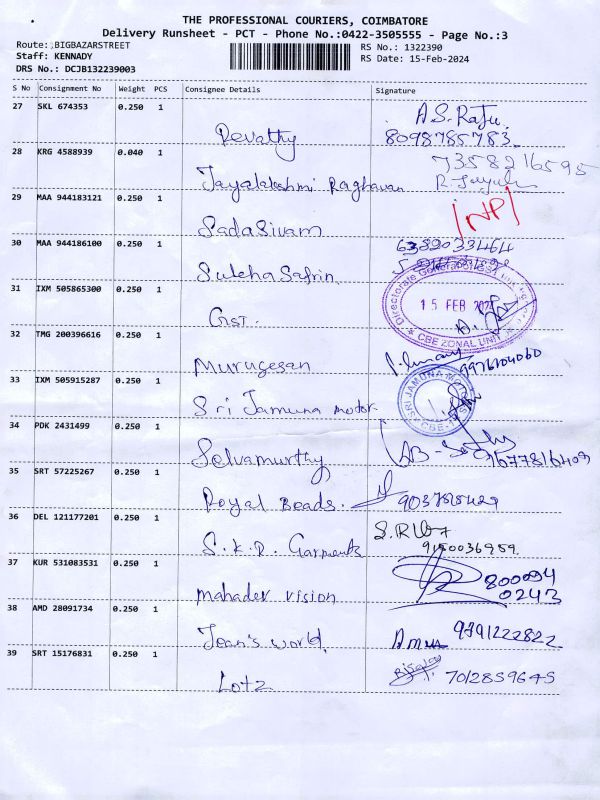 THE PROFESSIONAL COURIERS, COIMBATORE
Delivery Runsheet - PCT - Phone No.:0422-3505555 - Page No.:3
Route: :BIGBAZARSTREET RS No.: 1322390
Staff: KENNADY RS Date: 15-Feb-2024
DRS No.: DCJB132239003
S No Consignment No Weight PCS Consignee Details Signature
27 SKL 674353 0.250 1 A.S. Raju
Revathy 8098785783
28 KRG 4588939 0.040 1 7358216595
Jayalakshmi Raghavan
29 MAA 944183121 0.250 1
Sadasivam
30 MAA 944186100 0.250 1 6389033464
Sulcha Safrin
31 IXM 505865300 0.250 1 Directorate General of
15 FEB 2024
GST. CBE ZONAL UNIT
32 TMG 200396616 0.250 1
Murugesan 9976104060
33 IXM 505915287 0.250 1 SRI JAMUNA MOTOR
Sri Jamuna motor.
34 PDK 2431499 0.250 1
Selvamurthy
35 SRT 57225267 0.250 1
Royal Beads.
36 DEL 121177201 0.250 1
S.K.R. Garments 9150036959
37 KUR 531083531 0.250 1 800094
mahadev vision 0243
38 AMD 28091734 0.250 1
Jean's world. 9791222822
39 SRT 15176831 0.250 1
Lotz 7012859645